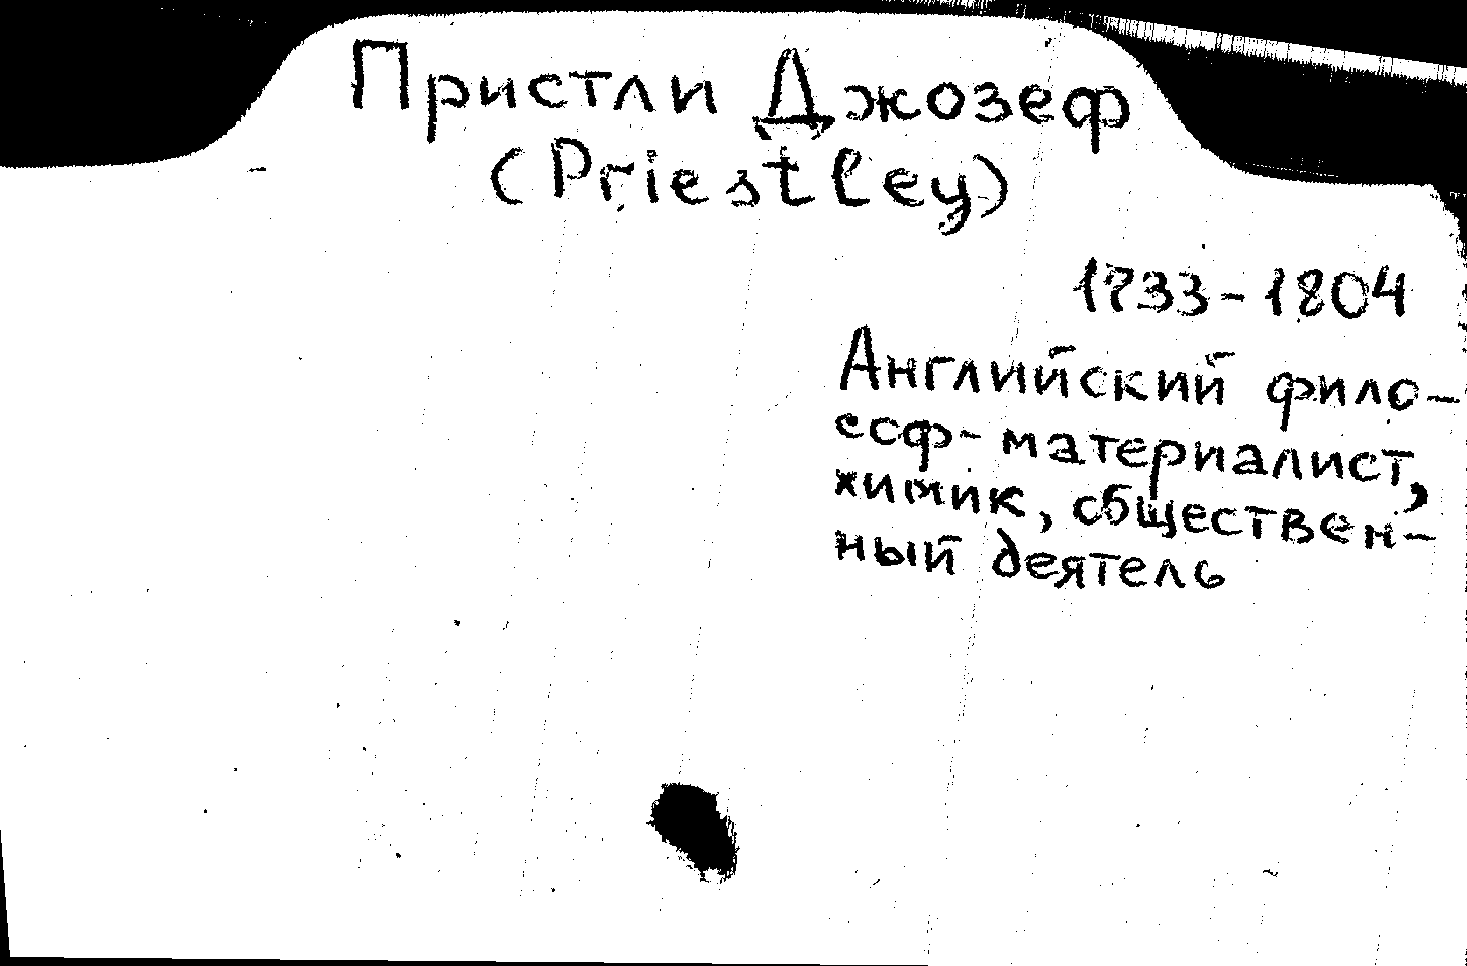 Пристли Джозеф
(Priestley)
1733-1804
Английский фило-
соф-материалист,
химик, обществен-
ный деятель